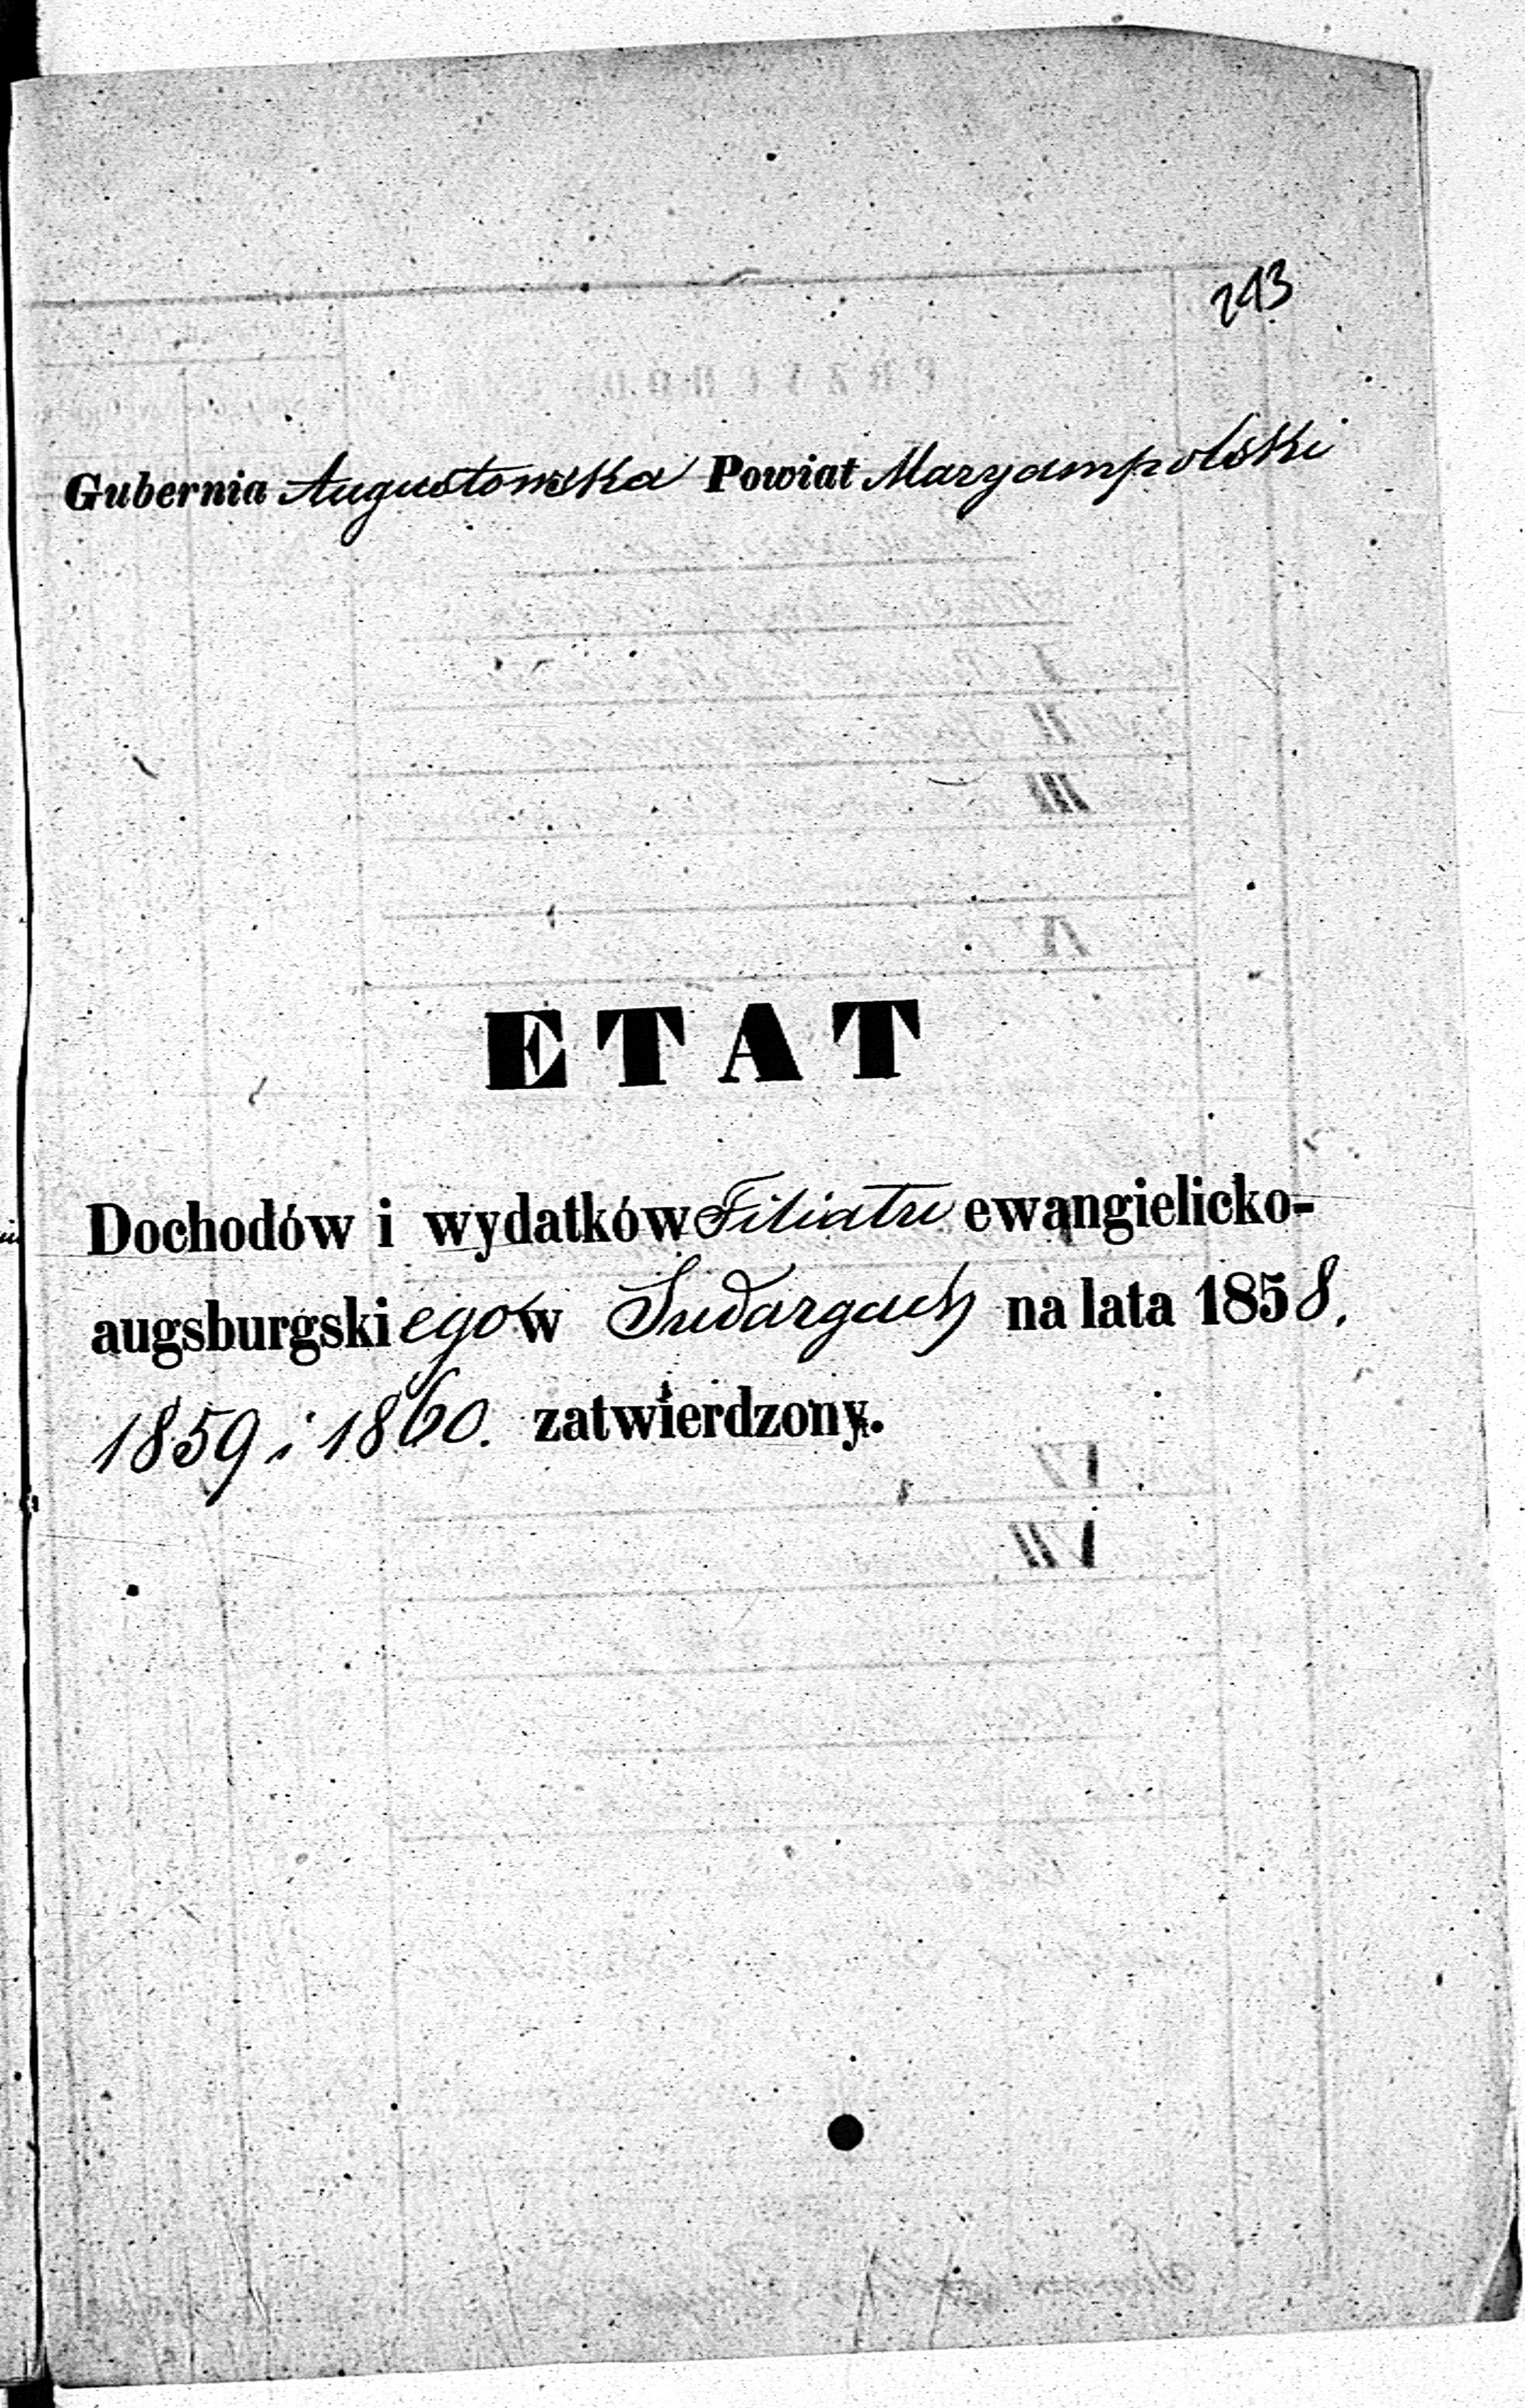 243
Gubernia Augustowska Powiat Maryampolski
ETAT
Dochodów i wydatków Filiatu ewangielicko-
augsburskiego w Sudargach na lata 1858.
1859 i 1860. zatwierdzony.